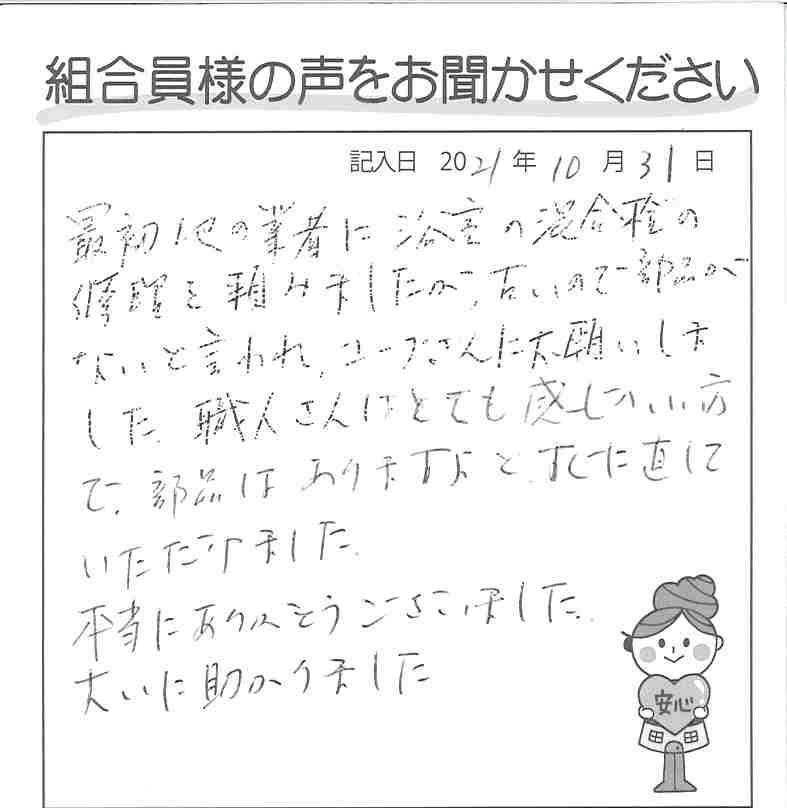 組合員様の声をお聞かせください
記入日 2021年10月31日
最初他の業者に浴室の混合栓の
修理を頼みましたが、古いので部品が
ないと言われ、コープさんにお願いしま
した。職人さんはとても感じのいい方
で、部品はありますよと、すぐに直して
いただけました。
本当にありがとうございました。
大いに助かりました
安心